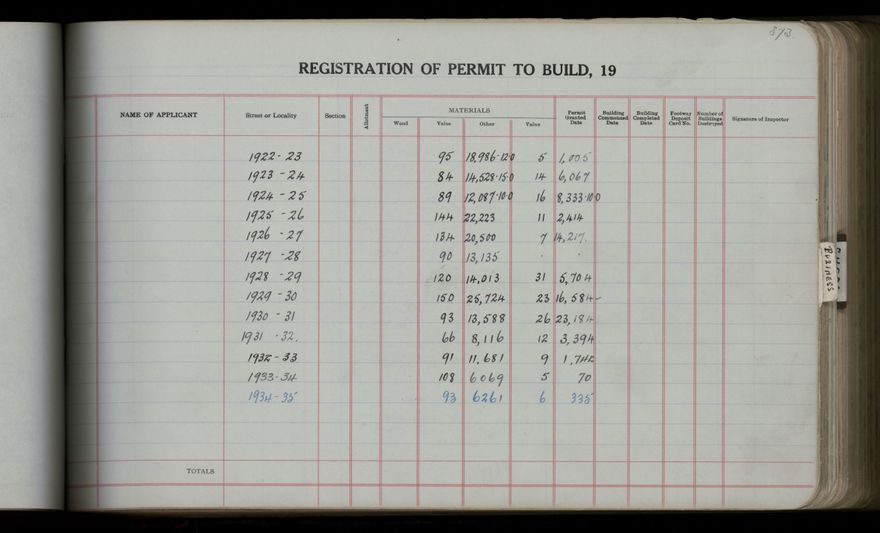 873
REGISTRATION OF PERMIT TO BUILD, 19
NAME OF APPLICANT Street or Locality Section Allotment MATERIALS Permit Granted Date Building Commenced Date Building Completed Date Footway Deposit Card No. Number of Buildings Destroyed Signature of Inspector
Wood Value Other Value
1922-23 95 18,986-12-0 5 1,005
1923-24 84 14,528-15-0 14 6,067
1924-25 89 12,087-10-0 16 8,333-10-0
1925-26 144 22,223 11 2,414
1926-27 134 20,500 7 14,217.
1927-28 90 13,135 - -
1928-29 120 14,013 31 5,704
1929-30 150 25,724 23 16,584-
1930-31 93 13,588 26 23,184
1931-32. 66 8,116 12 3,394
1932-33 91 11,681 9
1933-34 108 6069 5 70
1934-35 93 6261 6 335
TOTALS
BUSINESS